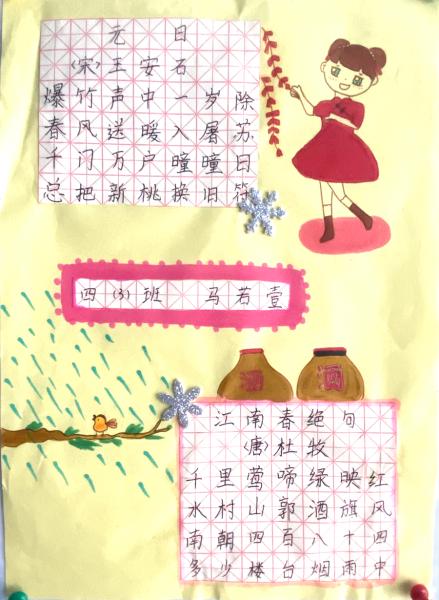 元日
(宋)王安石
爆竹声中一岁除
春风送暖入屠苏
千门万户曈曈日
总把新桃换旧符
四(3)班 马若壹
酒
酒
江南春绝句
(唐)杜牧
千里莺啼绿映红
水村山郭酒旗风
南朝四百八十四
多少楼台烟雨中